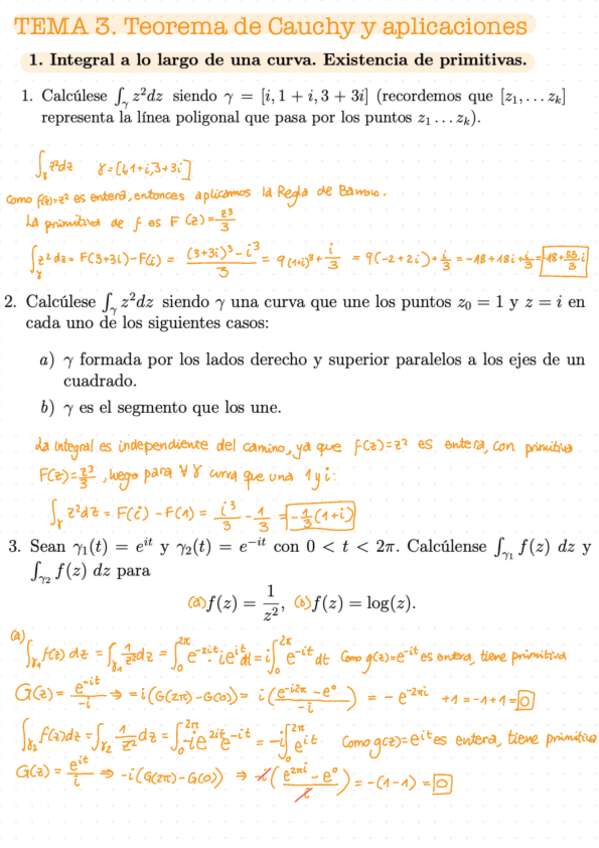 TEMA 3. Teorema de Cauchy y aplicaciones
1. Integral a lo largo de una curva. Existencia de primitivas.
1. Calcúlese ∫_γ z²dz siendo γ = [i, 1 + i, 3 + 3i] (recordemos que [z₁, . . . z_k]
representa la línea poligonal que pasa por los puntos z₁ . . . z_k).
∫_γ z²dz γ=[i,1+i,3+3i]
Como f(z)=z² es entera, entonces aplicamos la Regla de Barrow.
La primitiva de f es F(z)=z³/3
∫_γ z²dz = F(3+3i)-F(i) = ((3+3i)³-i³)/3 = 9(1+i)³+i/3 = 9(-2+2i)+i/3 = -18+18i+i/3 = -18+55/3 i
2. Calcúlese ∫_γ z²dz siendo γ una curva que une los puntos z₀ = 1 y z = i en
cada uno de los siguientes casos:
a) γ formada por los lados derecho y superior paralelos a los ejes de un
cuadrado.
b) γ es el segmento que los une.
La integral es independiente del camino, ya que f(z)=z² es entera, con primitiva
F(z)=z³/3, luego para ∀γ curva que una 1 y i:
∫_γ z²dz = F(i)-F(1) = i³/3 - 1/3 = -1/3(1+i)
3. Sean γ₁(t) = e^{it} y γ₂(t) = e^{-it} con 0 < t < 2π. Calcúlense ∫_{γ₁} f(z) dz y
∫_{γ₂} f(z) dz para
(a) f(z) = 1/z², (b) f(z) = log(z).
(a)
∫_{γ₁} f(z) dz = ∫_{γ₁} 1/z² dz = ∫₀^{2π} e^{-2it}·ie^{it}dt = i∫₀^{2π} e^{-it}dt Como g(z)=e^{-it} es entera, tiene primitiva
G(z) = e^{-it}/-i ⇒ = i(G(2π)-G(0)) = i((e^{-i2π}-e⁰)/-i) = -e^{-2πi} +1 = -1+1 = 0
∫_{γ₂} f(z)dz = ∫_{γ₂} 1/z² dz = ∫₀^{2π} -ie^{2it}e^{-it} = -i∫₀^{2π} e^{it} Como g(z)=e^{it} es entera, tiene primitiva
G(z) = e^{it}/i ⇒ -i(G(2π)-G(0)) ⇒ -i((e^{2πi}-e⁰)/i) = -(1-1) = 0